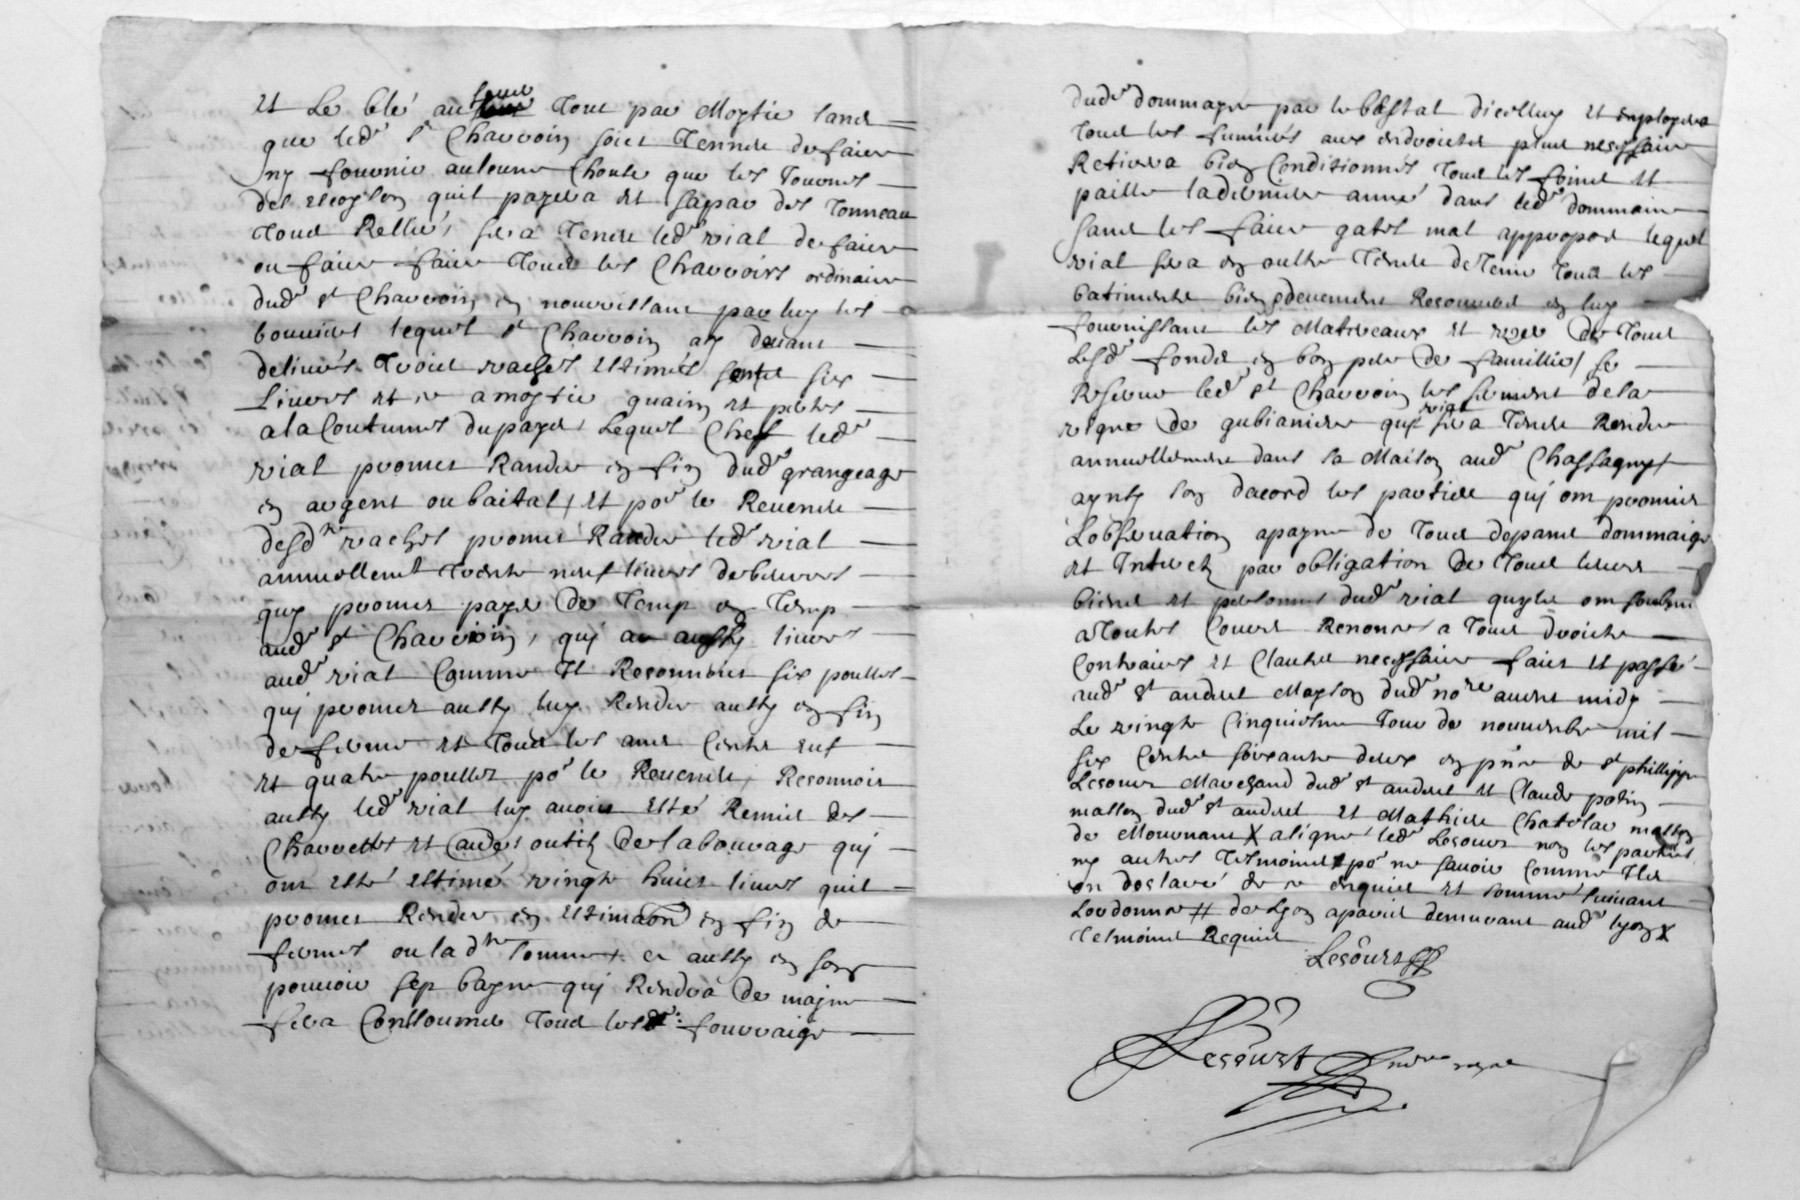 Et Le blé au four Tout par Moytié sans
que led^t S^r Charvoin soict Tennue de faire
ny fournir aulcune Chouse que les Tourres
des escoyson quil payera et sapar des Tonneau
Tous Relliés, sera Tenue led^t vial de faire
ou faire faire Tous les Charrois ordinaire
dud^t S^r Charvoin en nourrissant par luy les
bouviers lequel S^r Charvoin ay devant
delivrés Trois vaches Estimés sente six
Livres et a moytié quain et pertes
a la Coutumes du pays, Lequel Chef led^t
vial promet Randre en fin dud^t grangeage
en argent ou baital / Et po^r le Revenue
desd^tes vaches promet Randre led^t vial
annuellem^t Trente neuf livres de beurres
quy promet payer de Temp en Temp
aud^t S^r Charvoin, qui a aussy livres
aud^t vial Comme Il Reconnoict six poulles
qui promet aussy luy Rendre aussy en fin
de ferme et Tous les ans Cente euf
et quatre poulles po^r le Revenue, Reconnois
aussy led^t vial luy avoir Esté Remis des
Charrettes et autres outilz de labourage qui
ont esté estimé vingte huict livres quil
promet Rendre en Estimaon en fin de
fermes ou lad^te somme, et aussy en son
pouvoir sep bagne qui Rendra de majme
sera Consoumer Tous lesd^t: fourraige
dud^t dommayne par le bestal dicelluy et employera
Tous les fumiés aux endroictes plus nessessaire
Retirera bien Conditionnés Tous les foins et
paille la derniere anné dans led^t dommaine
sans les faire gatés mal appropos lequel
vial sera en oultre Tenue de Tenir Tous les
batimente bien deuement Recouvert en luy
fournissant les Materaux et user de Tous
Lesd^t fonds en bon pere de famillie / se
Reserve led^t S^r Charvoin les serment de la
vigne de gubianiere que vial sera Tenue Rendre
annuellement dans sa Maison aud^t Chassagny /
aynsy son dacord les partiees qui ont promis
Lobservation apayne de Tous depans dommaige
et Interetz par obligation de Tous leurs
biens et personnes dud^t vial quyle ont soubmis
a Toutes Cours Renonses a Tous droicte
Contraires et Clautes nessessaire faict et passé
aud^t S^t andret Mayson dud^t no^re avent midy
Le vingte Cinquiesme Jour de novembre mil
six Cents soixante deux en p^nce de S^r phillippe
Lecourt Marchand dud^t S^t andret et Claude potin
masson dud^t S^t andret et Mathieu Chatelar masson
de Mournant X a signe led^t Lecourt non les partiees
ny autres Tesmoines po^r ne savoir Comme Iles
on desclaré de ce enquis et sommé suivant
Lordonnce # de Lyon apavié demurant aud^t lyon X
Tesmoines Requis
Lecourt
Lecourt no^re royal